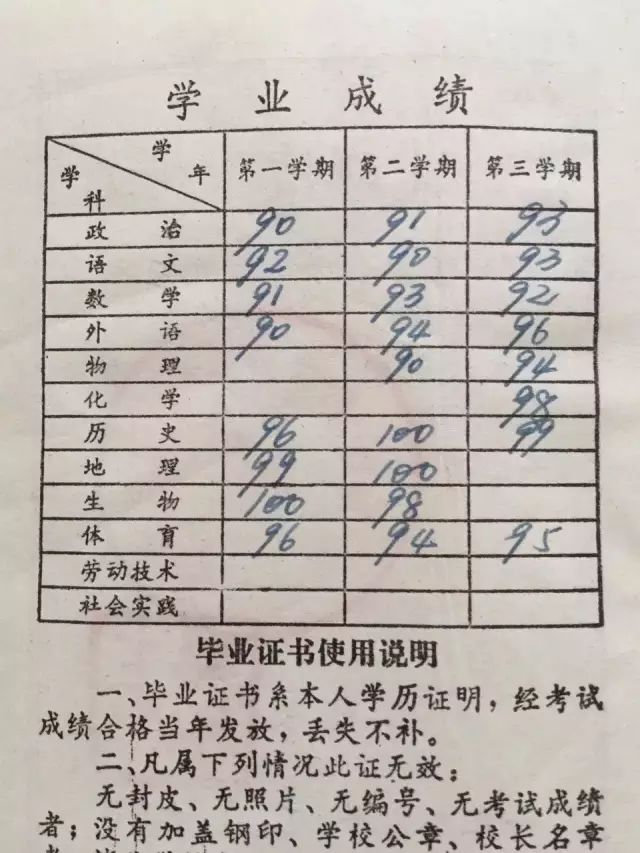 学业成绩
学年
学科
第一学期 第二学期 第三学期
政治 90 91 93
语文 92 90 93
数学 91 93 92
外语 90 94 96
物理 90 94
化学 98
历史 96 100 99
地理 99 100
生物 100 98
体育 96 94 95
劳动技术
社会实践
毕业证书使用说明
一、毕业证书系本人学历证明，经考试
成绩合格当年发放，丢失不补。
二、凡属下列情况此证无效：
无封皮、无照片、无编号、无考试成绩
者；没有加盖钢印、学校公章、校长名章